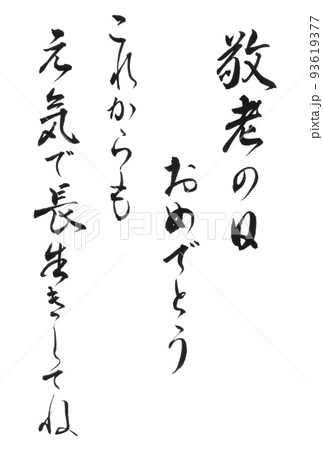 敬老の日
おめでとう
これからも
元気で長生きしてね
PIXTA
pixta.jp - 93619377